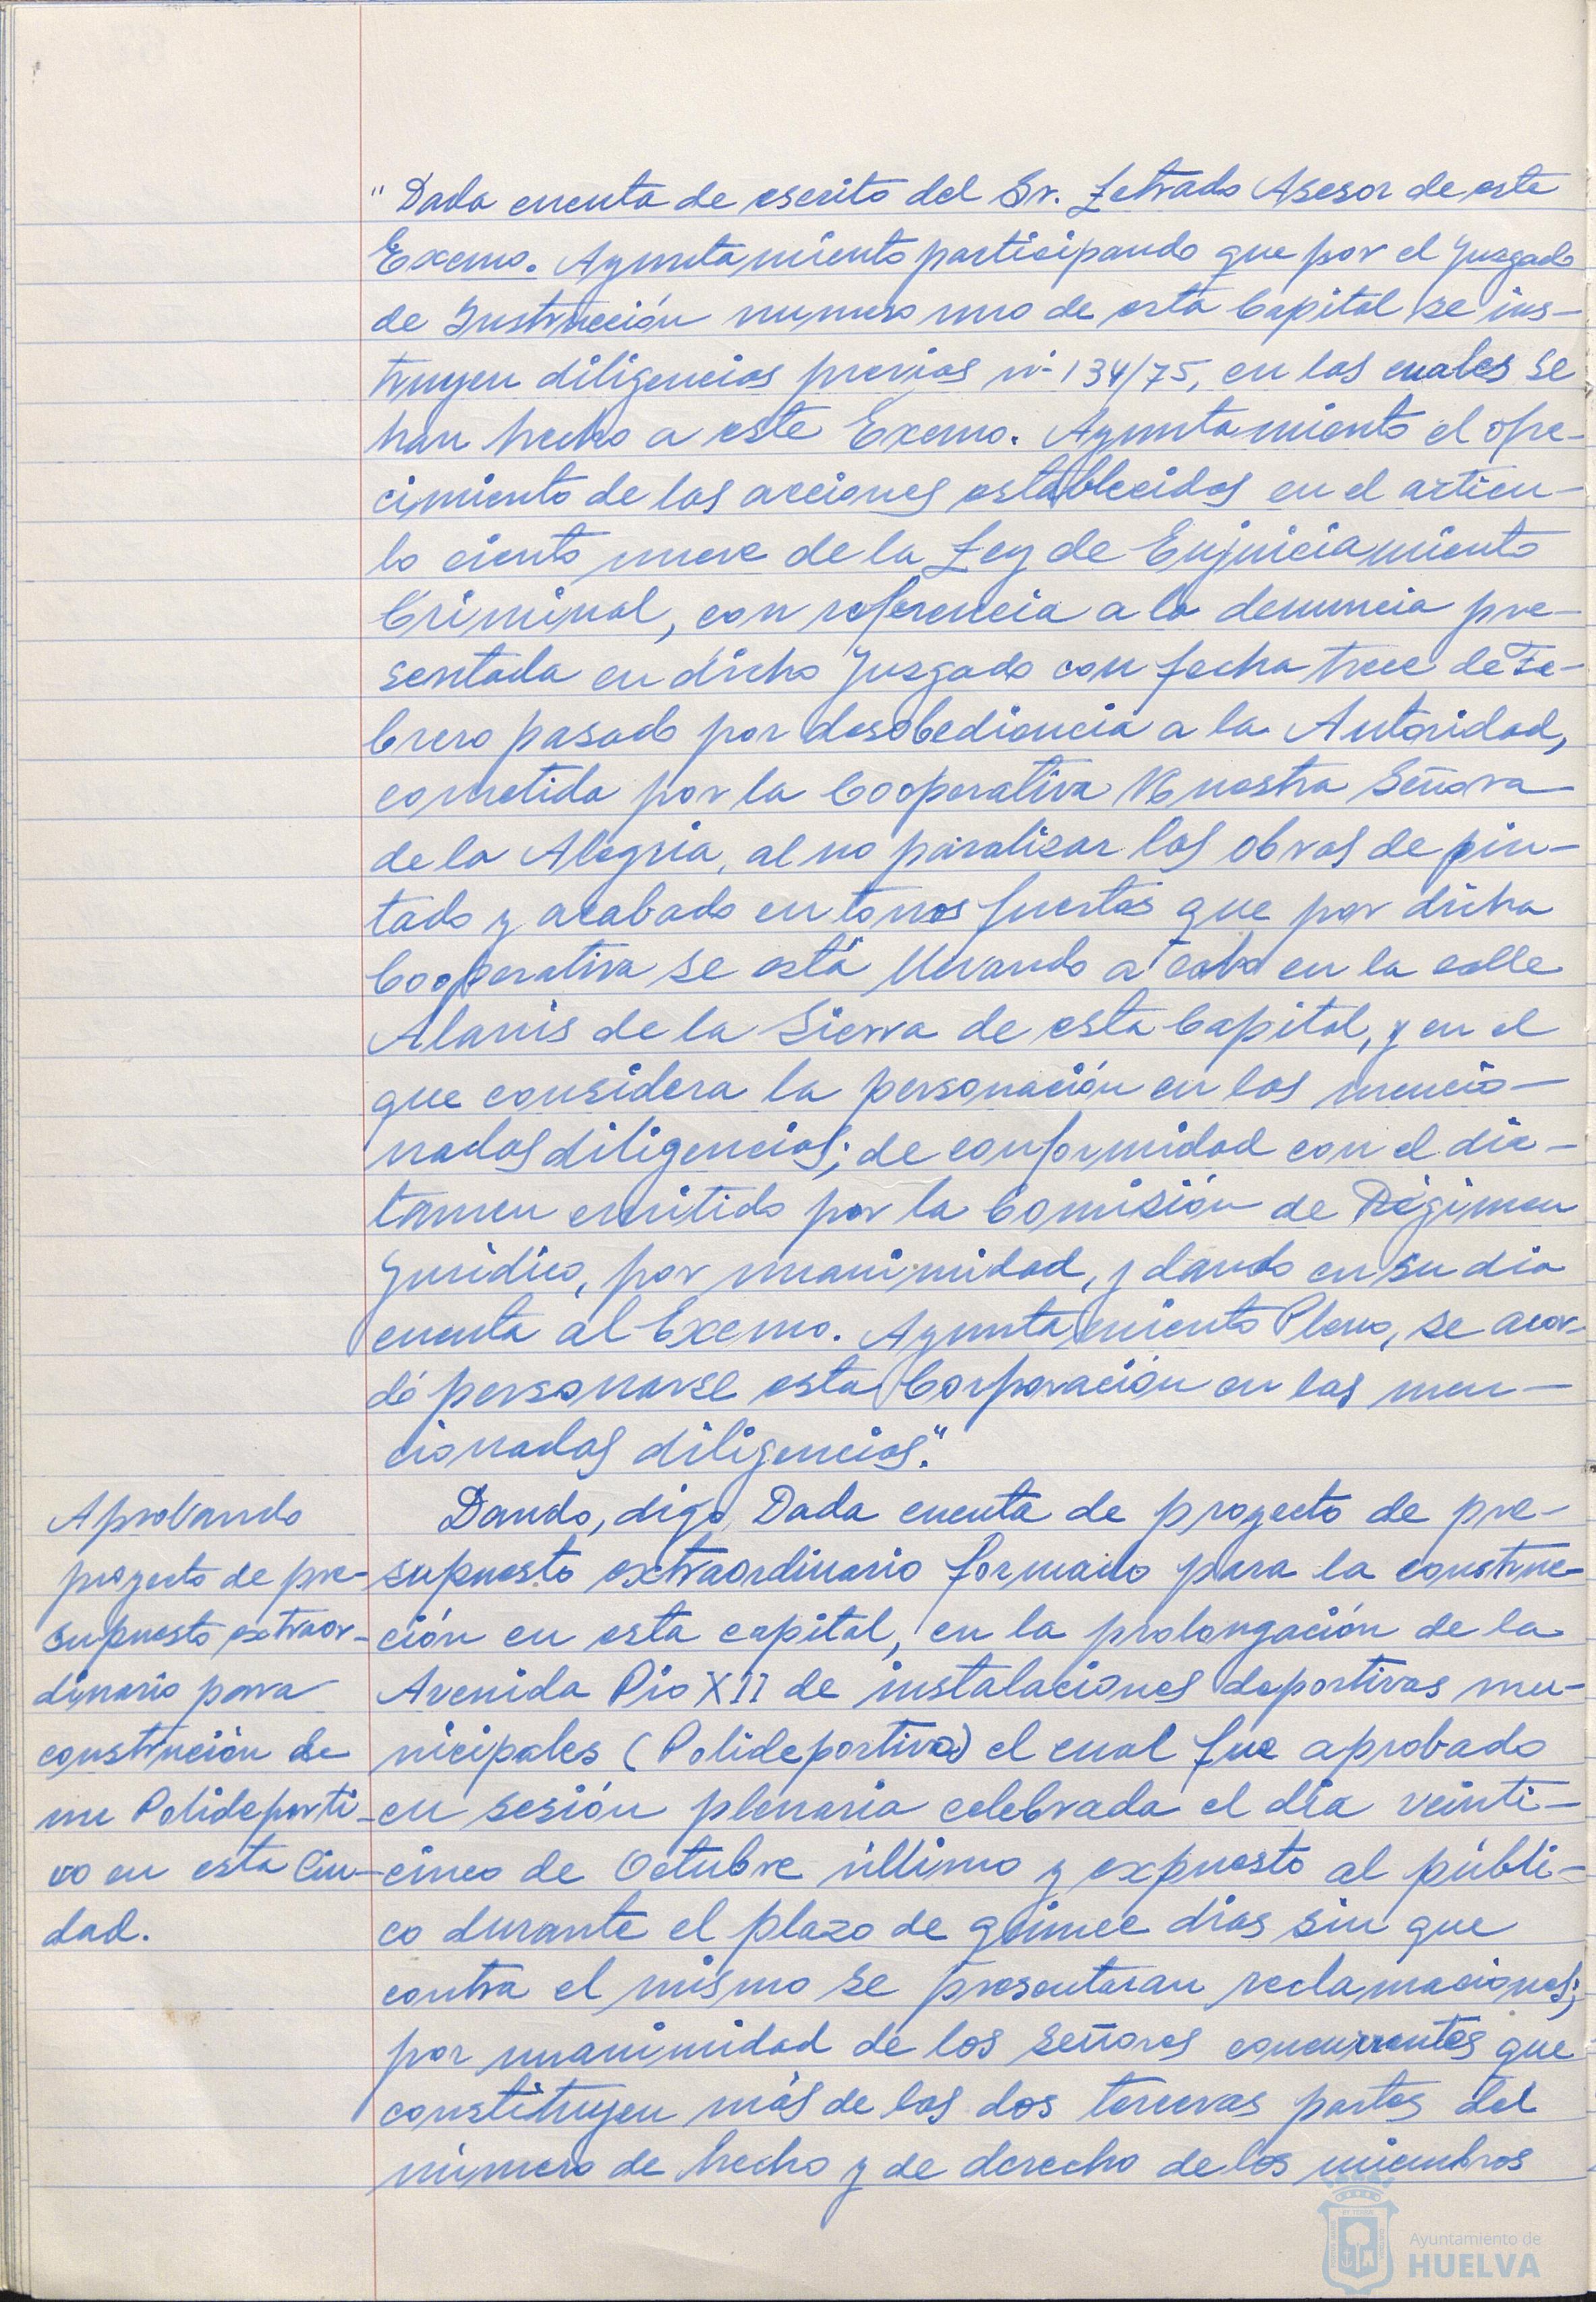 "Dada cuenta de escrito del Sr. Letrado Asesor de este
Excmo. Ayuntamiento participando que por el Juzgado
de Instrucción numero uno de esta Capital se ins-
truyen diligencias previas nº 134/75, en las cuales se
han hecho a este Excmo. Ayuntamiento el ofre-
cimiento de las acciones establecidas en el artícu-
lo ciento nueve de la Ley de Enjuiciamiento
Criminal, con referencia a la denuncia pre-
sentada en dicho Juzgado con fecha trece de Fe-
brero pasado por desobediencia a la Autoridad,
cometida por la Cooperativa Nuestra Señora
de la Alegria, al no paralizar las obras de pin-
tado y acabado en tonos fuertes que por dicha
Cooperativa se está llevando a cabo en la calle
Alanis de la Sierra de esta Capital, y en el
que considera la personación en las mencio-
nadas diligencias; de conformidad con el dic-
tamen emitido por la Comisión de Régimen
Juridico, por unanimidad, y dando en su dia
cuenta al Excmo. Ayuntamiento Pleno, se acor-
dó personarse esta Corporación en las men-
cionadas diligencias".
Aprobando
proyecto de pre-
supuesto extraor-
dinario para
construción de
un Polideporti-
vo en esta Ciu-
dad.
Dando, digo, Dada cuenta de proyecto de pre-
supuesto extraordinario formado para la construc-
ción en esta capital, en la prolongación de la
Avenida Pio XII de instalaciones deportivas mu-
nicipales (Polideportivo) el cual fue aprobado
en sesión plenaria celebrada el día veinti-
cinco de Octubre último y expuesto al públi-
co durante el plazo de quince dias sin que
contra el mismo se presentaran reclamaciones;
por unanimidad de los señores concurrentes que
constituyen más de las dos terceras partes del
número de hecho y de derecho de los miembros
Ayuntamiento de
HUELVA